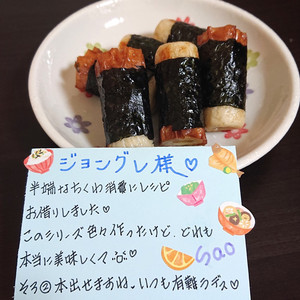 ジョングレ様♡
半端なちくわ消費にレシピ
お借りしました♡
このシリーズ色々作ったけど、どれも
本当に美味しくて
Sao
本出せますね。いつも有難うデス♡